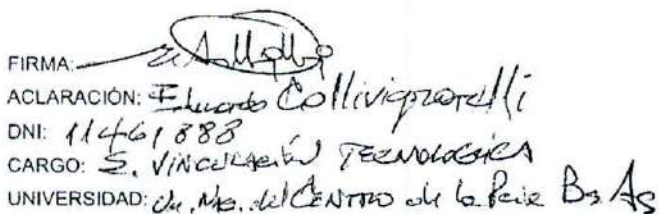 FIRMA:
ACLARACIÓN: Eduardo Collivignarelli
DNI: 11461888
CARGO: S. VINCULACIÓN TECNOLOGICA
UNIVERSIDAD: Un. Nac. del CENTRO de la Pcia Bs. As